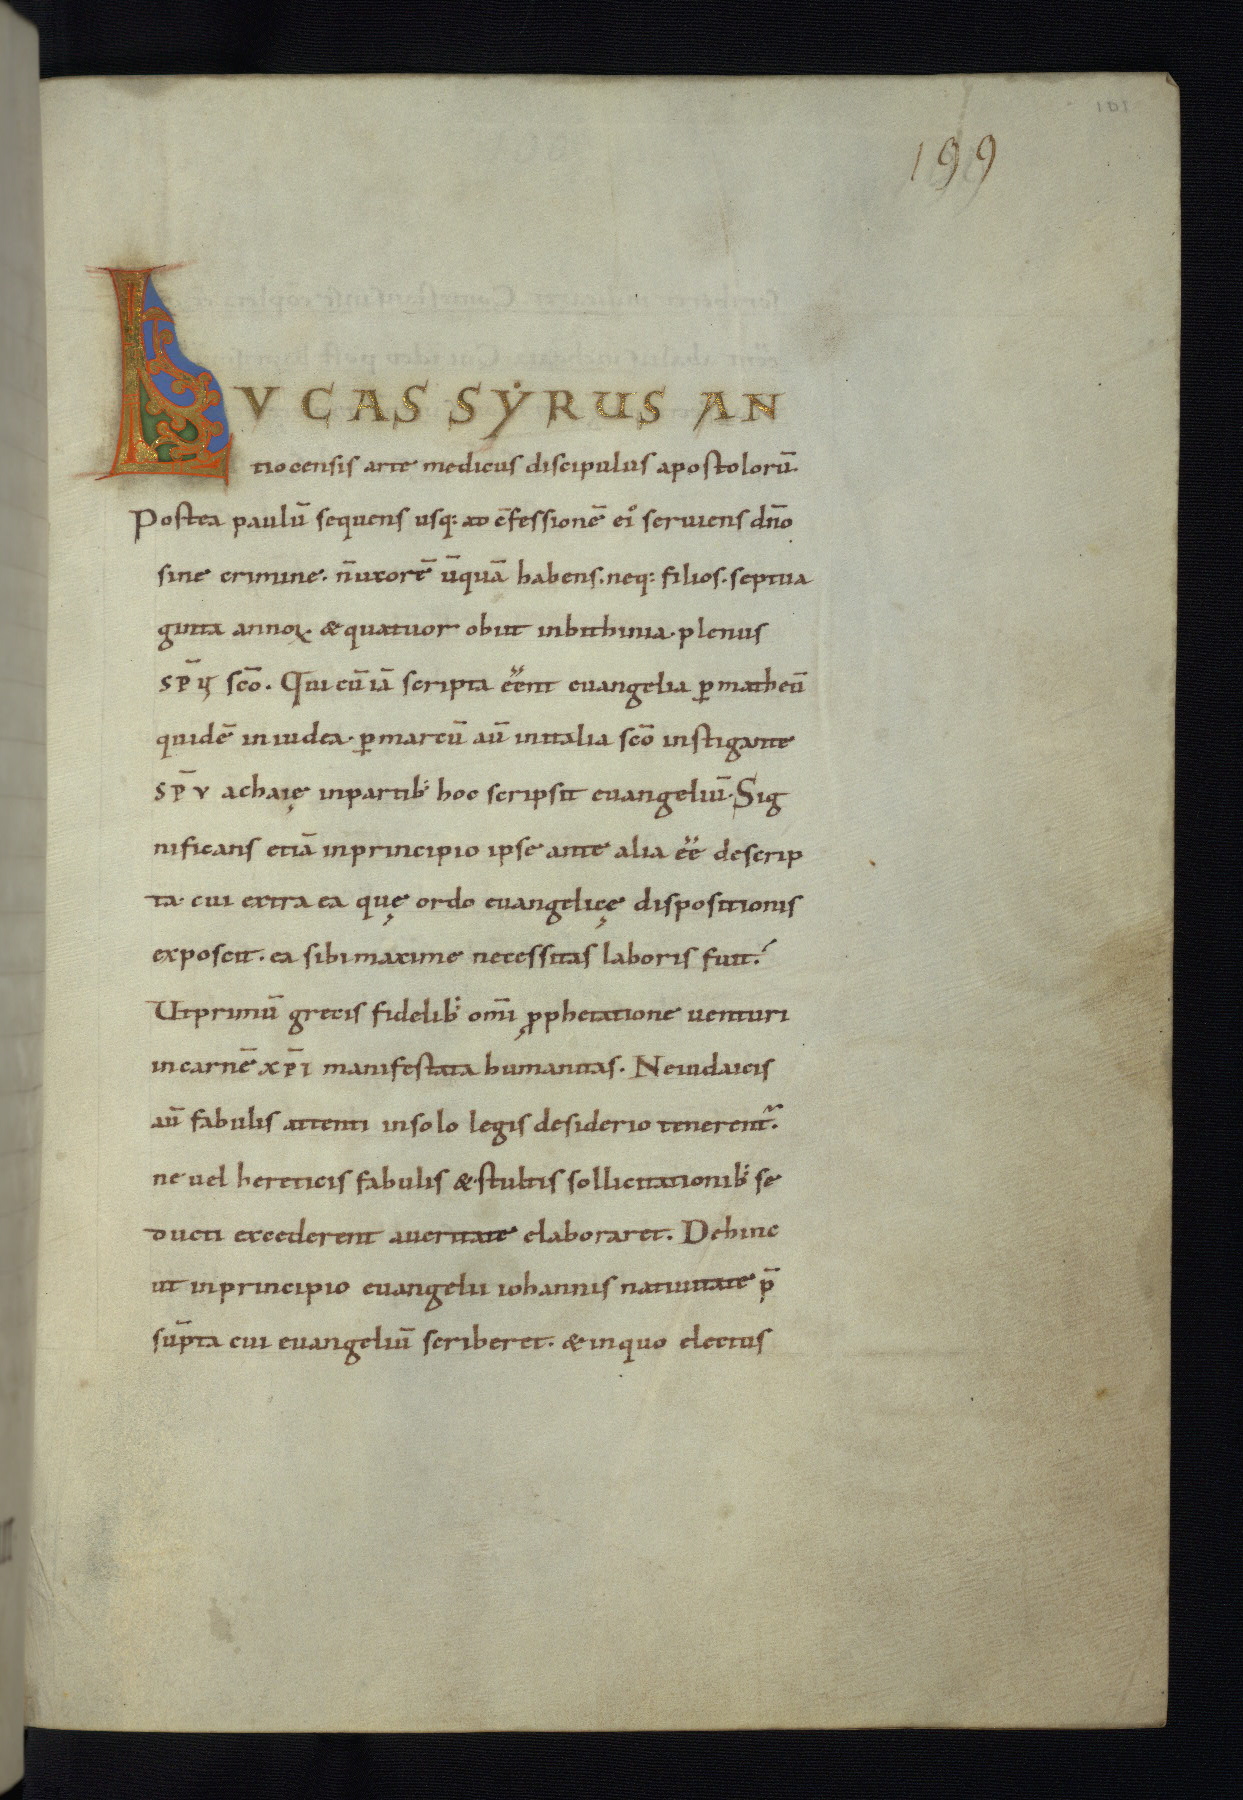 101
199
LVCAS SẎRUS AN
tiocensis arte medicus discipulus apostolorū.
Postea paulū sequens usq: ad c̄fessionē ei᷒ seruiens dn̄o
sine crimine. n̄ uxorē ūquā habens. neq: filios. septua
ginta annoꝝ. & quatuor obiit in bithinia. plenus
sp̄u sc̄o. Qui cū iā scripta eēnt euangelia ꝑ matheū
quidē in iudea. ꝑ marcū aū in italia sc̄o instigante
sp̄u achaię in partib; hoc scripsit euangeliū. Sig
nificans etiā in principio ipse ante alia eē descrip
ta. cui extra ea quę ordo euangelicę dispositionis
exposcit. ea sibi maxime necessitas laboris fuit.
Ut primū grecis fidelib; om̄i ꝓphetatione uenturi
in carnē xp̄i manifestata humanitas. Ne iudaicis
aū fabulis attenti in solo legis desiderio tenerent᷑.
ne uel hereticis fabulis & stultis sollicitationib; se
ducti excederent a ueritate elaboraret. Dehinc
ut in principio euangelii iohannis natiuitate p̄
sūpta cui euangeliū scriberet. & in quo electus